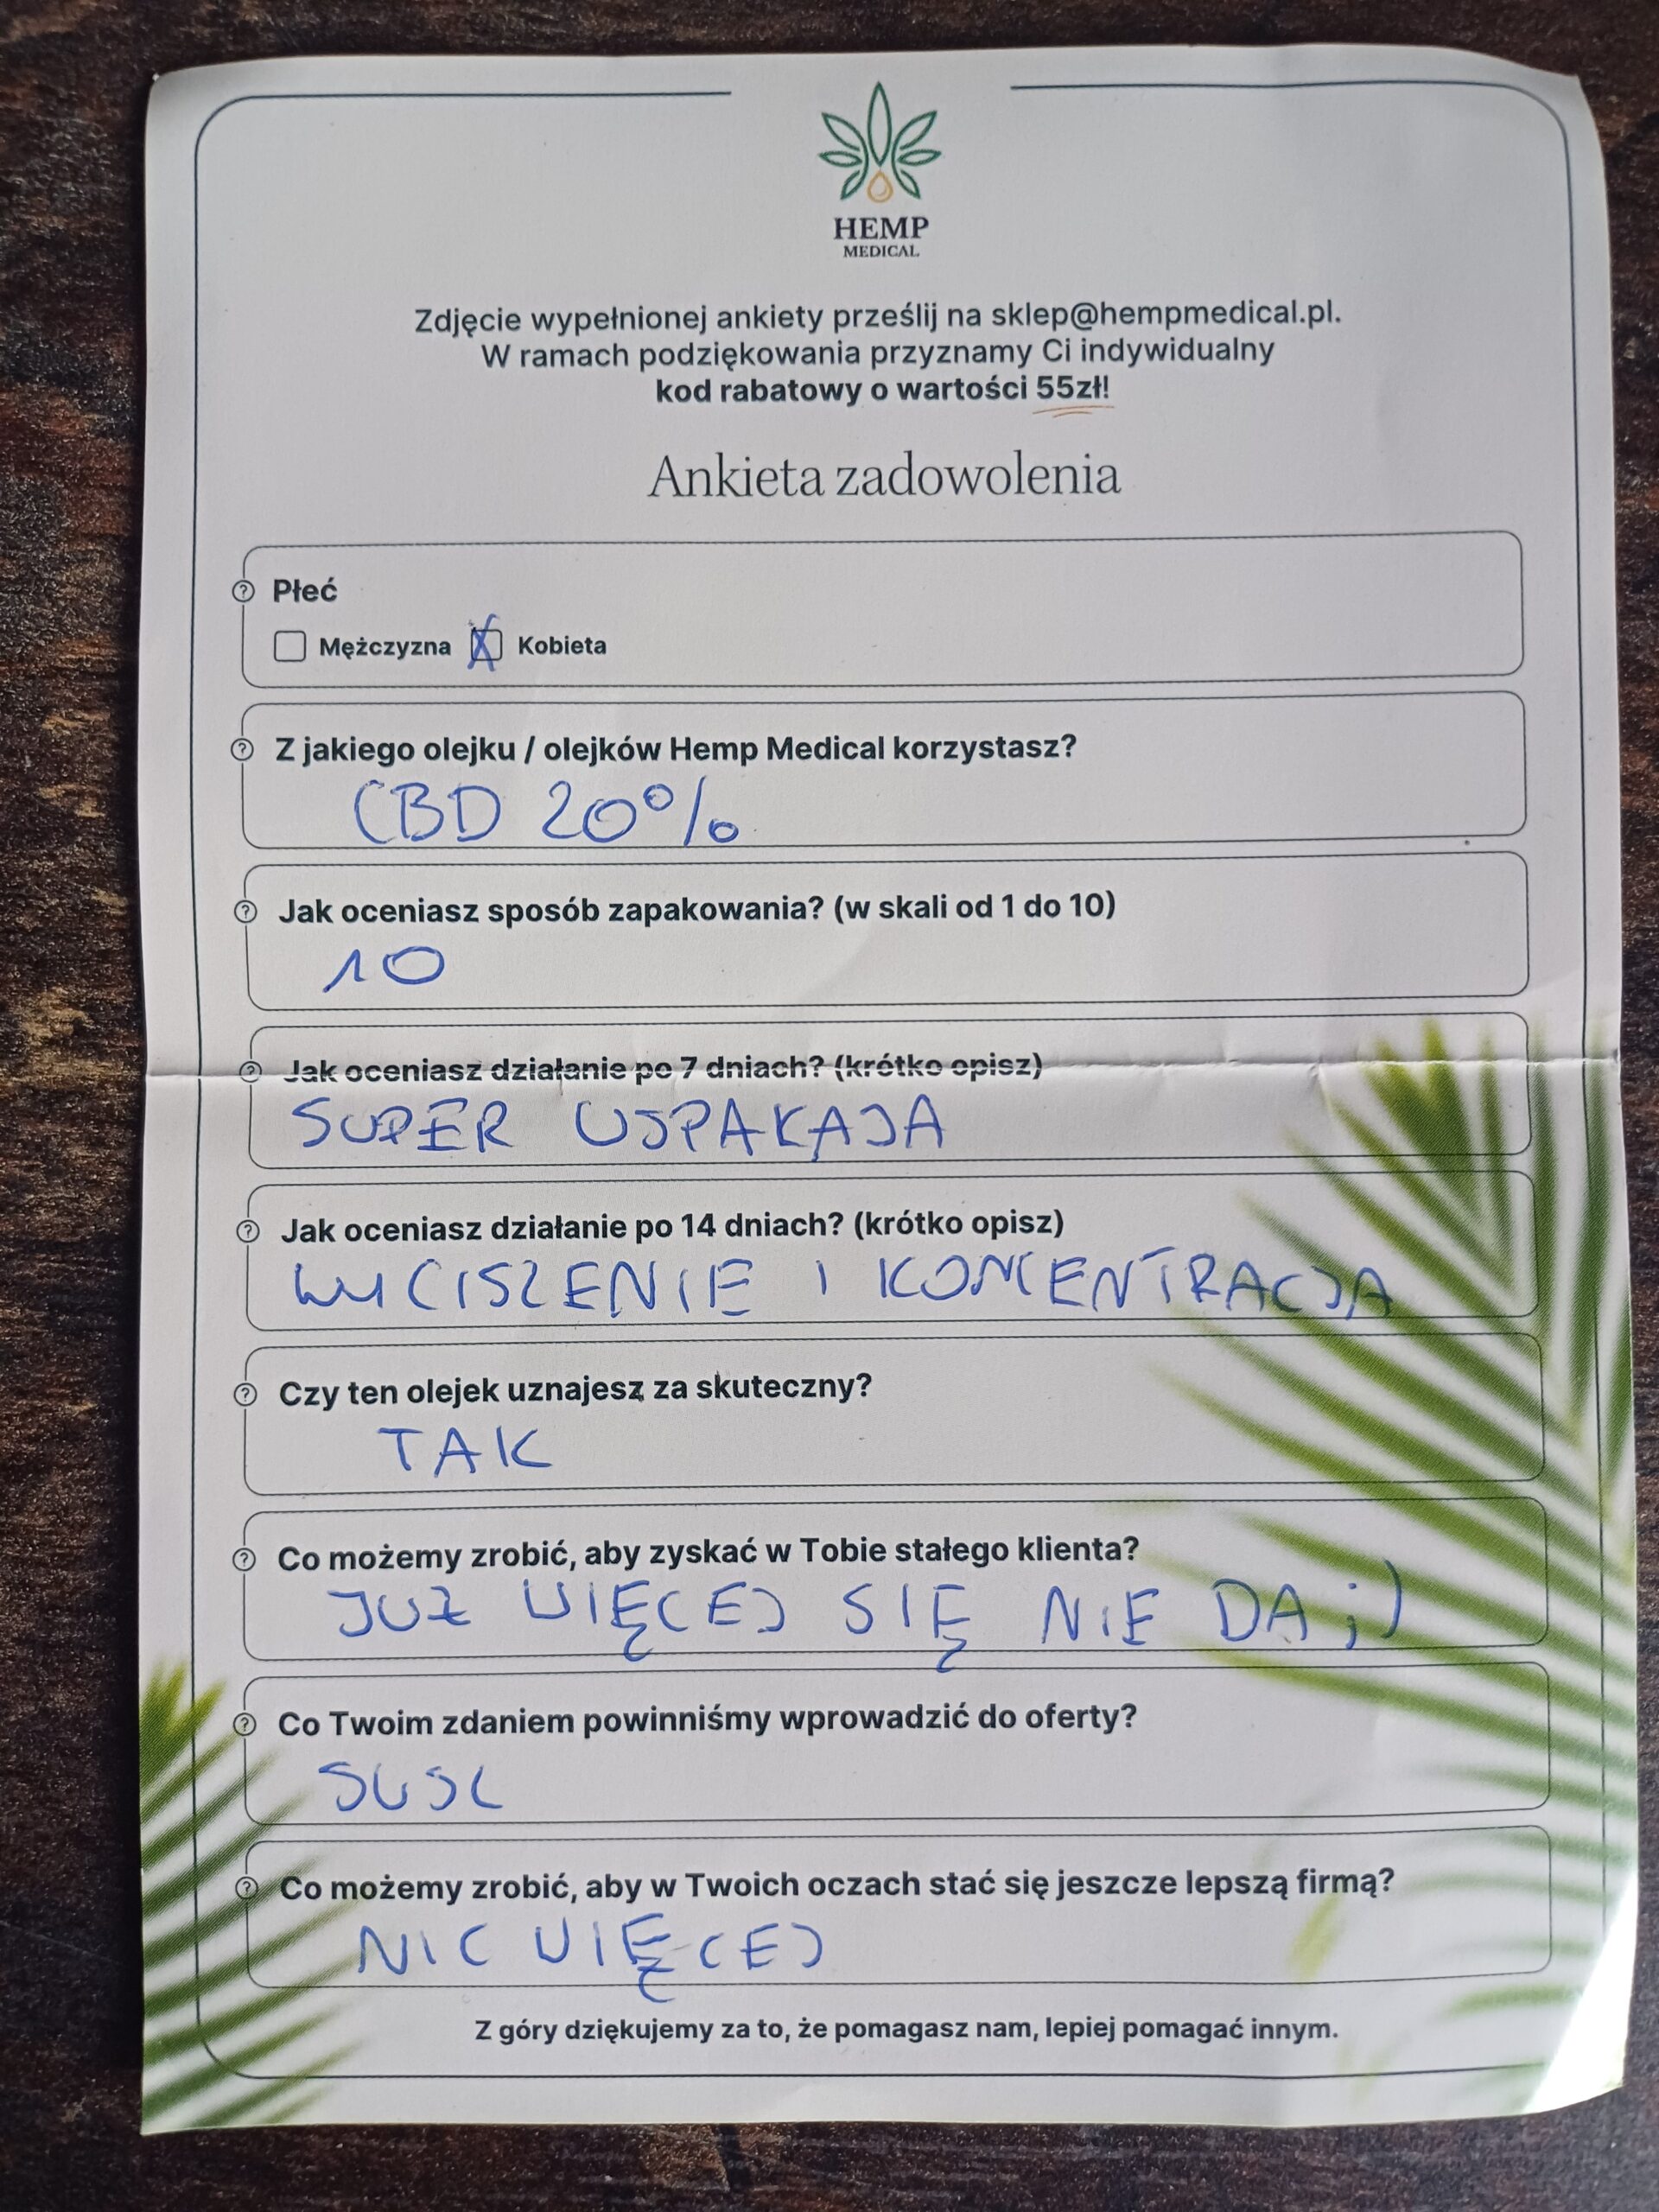 HEMP
MEDICAL
Zdjęcie wypełnionej ankiety prześlij na sklep@hempmedical.pl.
W ramach podziękowania przyznamy Ci indywidualny
kod rabatowy o wartości 55zł!
Ankieta zadowolenia
Płeć
Mężczyzna X Kobieta
Z jakiego olejku / olejków Hemp Medical korzystasz?
CBD 20%
Jak oceniasz sposób zapakowania? (w skali od 1 do 10)
10
Jak oceniasz działanie po 7 dniach? (krótko opisz)
SUPER USPAKAJA
Jak oceniasz działanie po 14 dniach? (krótko opisz)
WYCISZENIE I KONCENTRACJA
Czy ten olejek uznajesz za skuteczny?
TAK
Co możemy zrobić, aby zyskać w Tobie stałego klienta?
JUŻ WIĘCEJ SIĘ NIE DA ;)
Co Twoim zdaniem powinniśmy wprowadzić do oferty?
Co możemy zrobić, aby w Twoich oczach stać się jeszcze lepszą firmą?
NIC WIĘCEJ
Z góry dziękujemy za to, że pomagasz nam, lepiej pomagać innym.